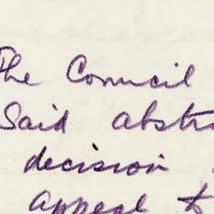 The Council
Said abstr
decision
appeal t